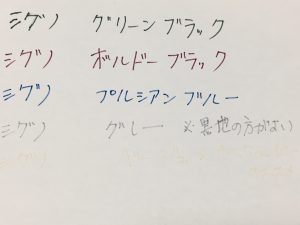 ミグノ グリーン ブラック
ミグノ ボルドー ブラック
ミグノ プルシアン ブルー
ミグノ グレー ※黒地の方がよい
ミグノ